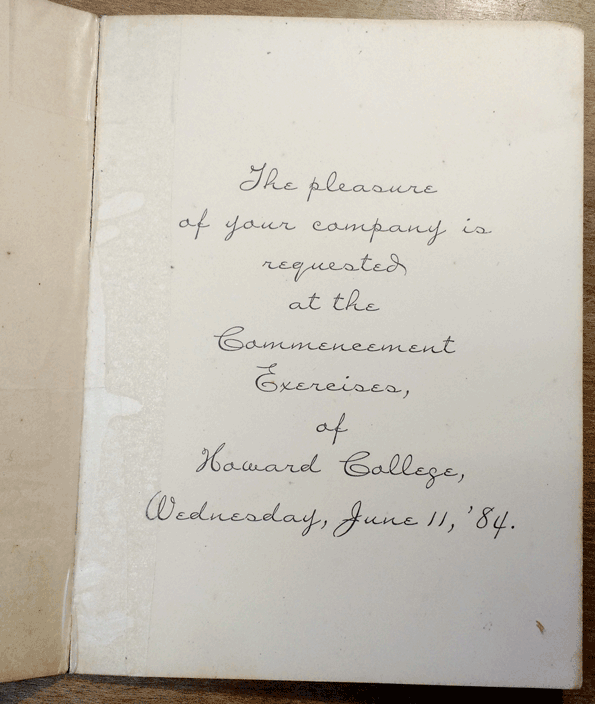 The pleasure
of your company is
requested
at the
Commencement
Exercises,
of
Howard College,
Wednesday, June 11, '84.